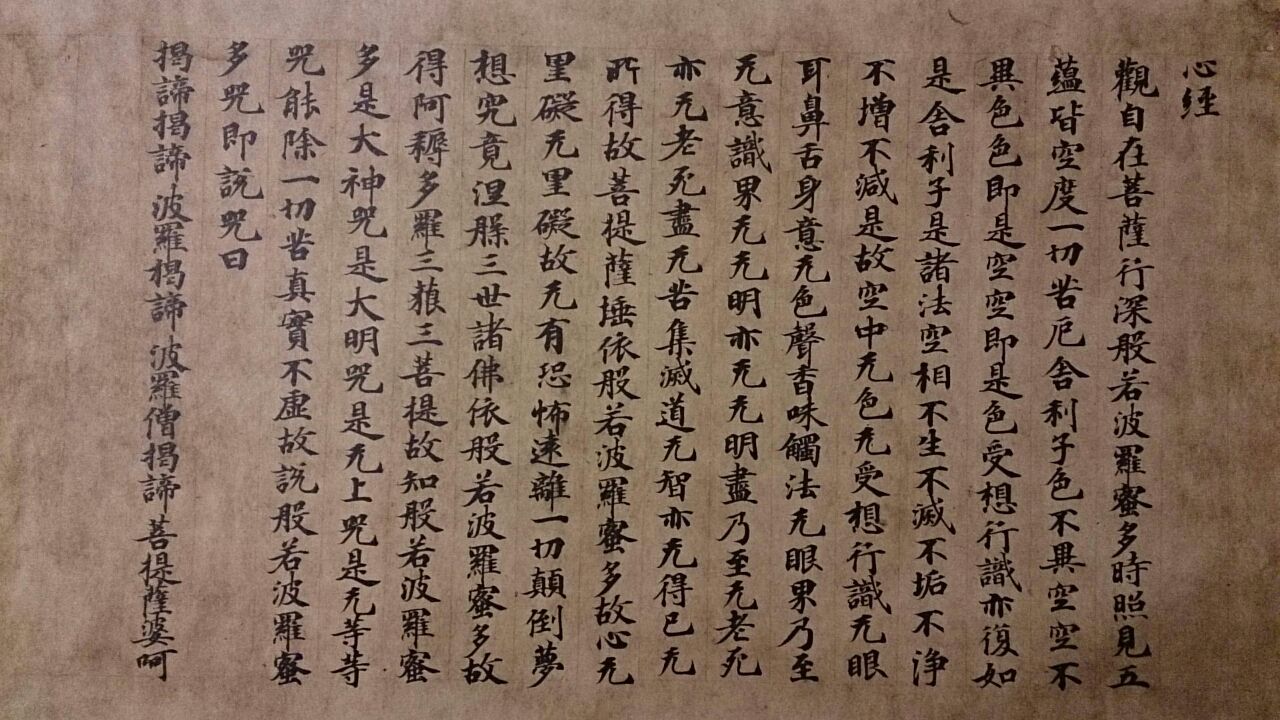 心經
觀自在菩薩行深般若波羅蜜多時照見五
蘊皆空度一切苦厄舍利子色不異空空不
異色色即是空空即是色受想行識亦復如
是舍利子是諸法空相不生不滅不垢不浄
不增不減是故空中无色无受想行識无眼
耳鼻舌身意无色聲香味觸法无眼界乃至
无意識界无无明亦无无明盡乃至无老死
亦无老死盡无苦集滅道无智亦无得已无
所得故菩提薩埵依般若波羅蜜多故心无
里礙无里礙故无有恐怖遠離一切顛倒夢
想究竟涅槃三世諸佛依般若波羅蜜多故
得阿耨多羅三藐三菩提故知般若波羅蜜
多是大神咒是大明咒是无上咒是无等等
咒能除一切苦真實不虛故説般若波羅蜜
多咒即説咒曰
揭諦揭諦 波羅揭諦 波羅僧揭諦 菩提薩婆呵